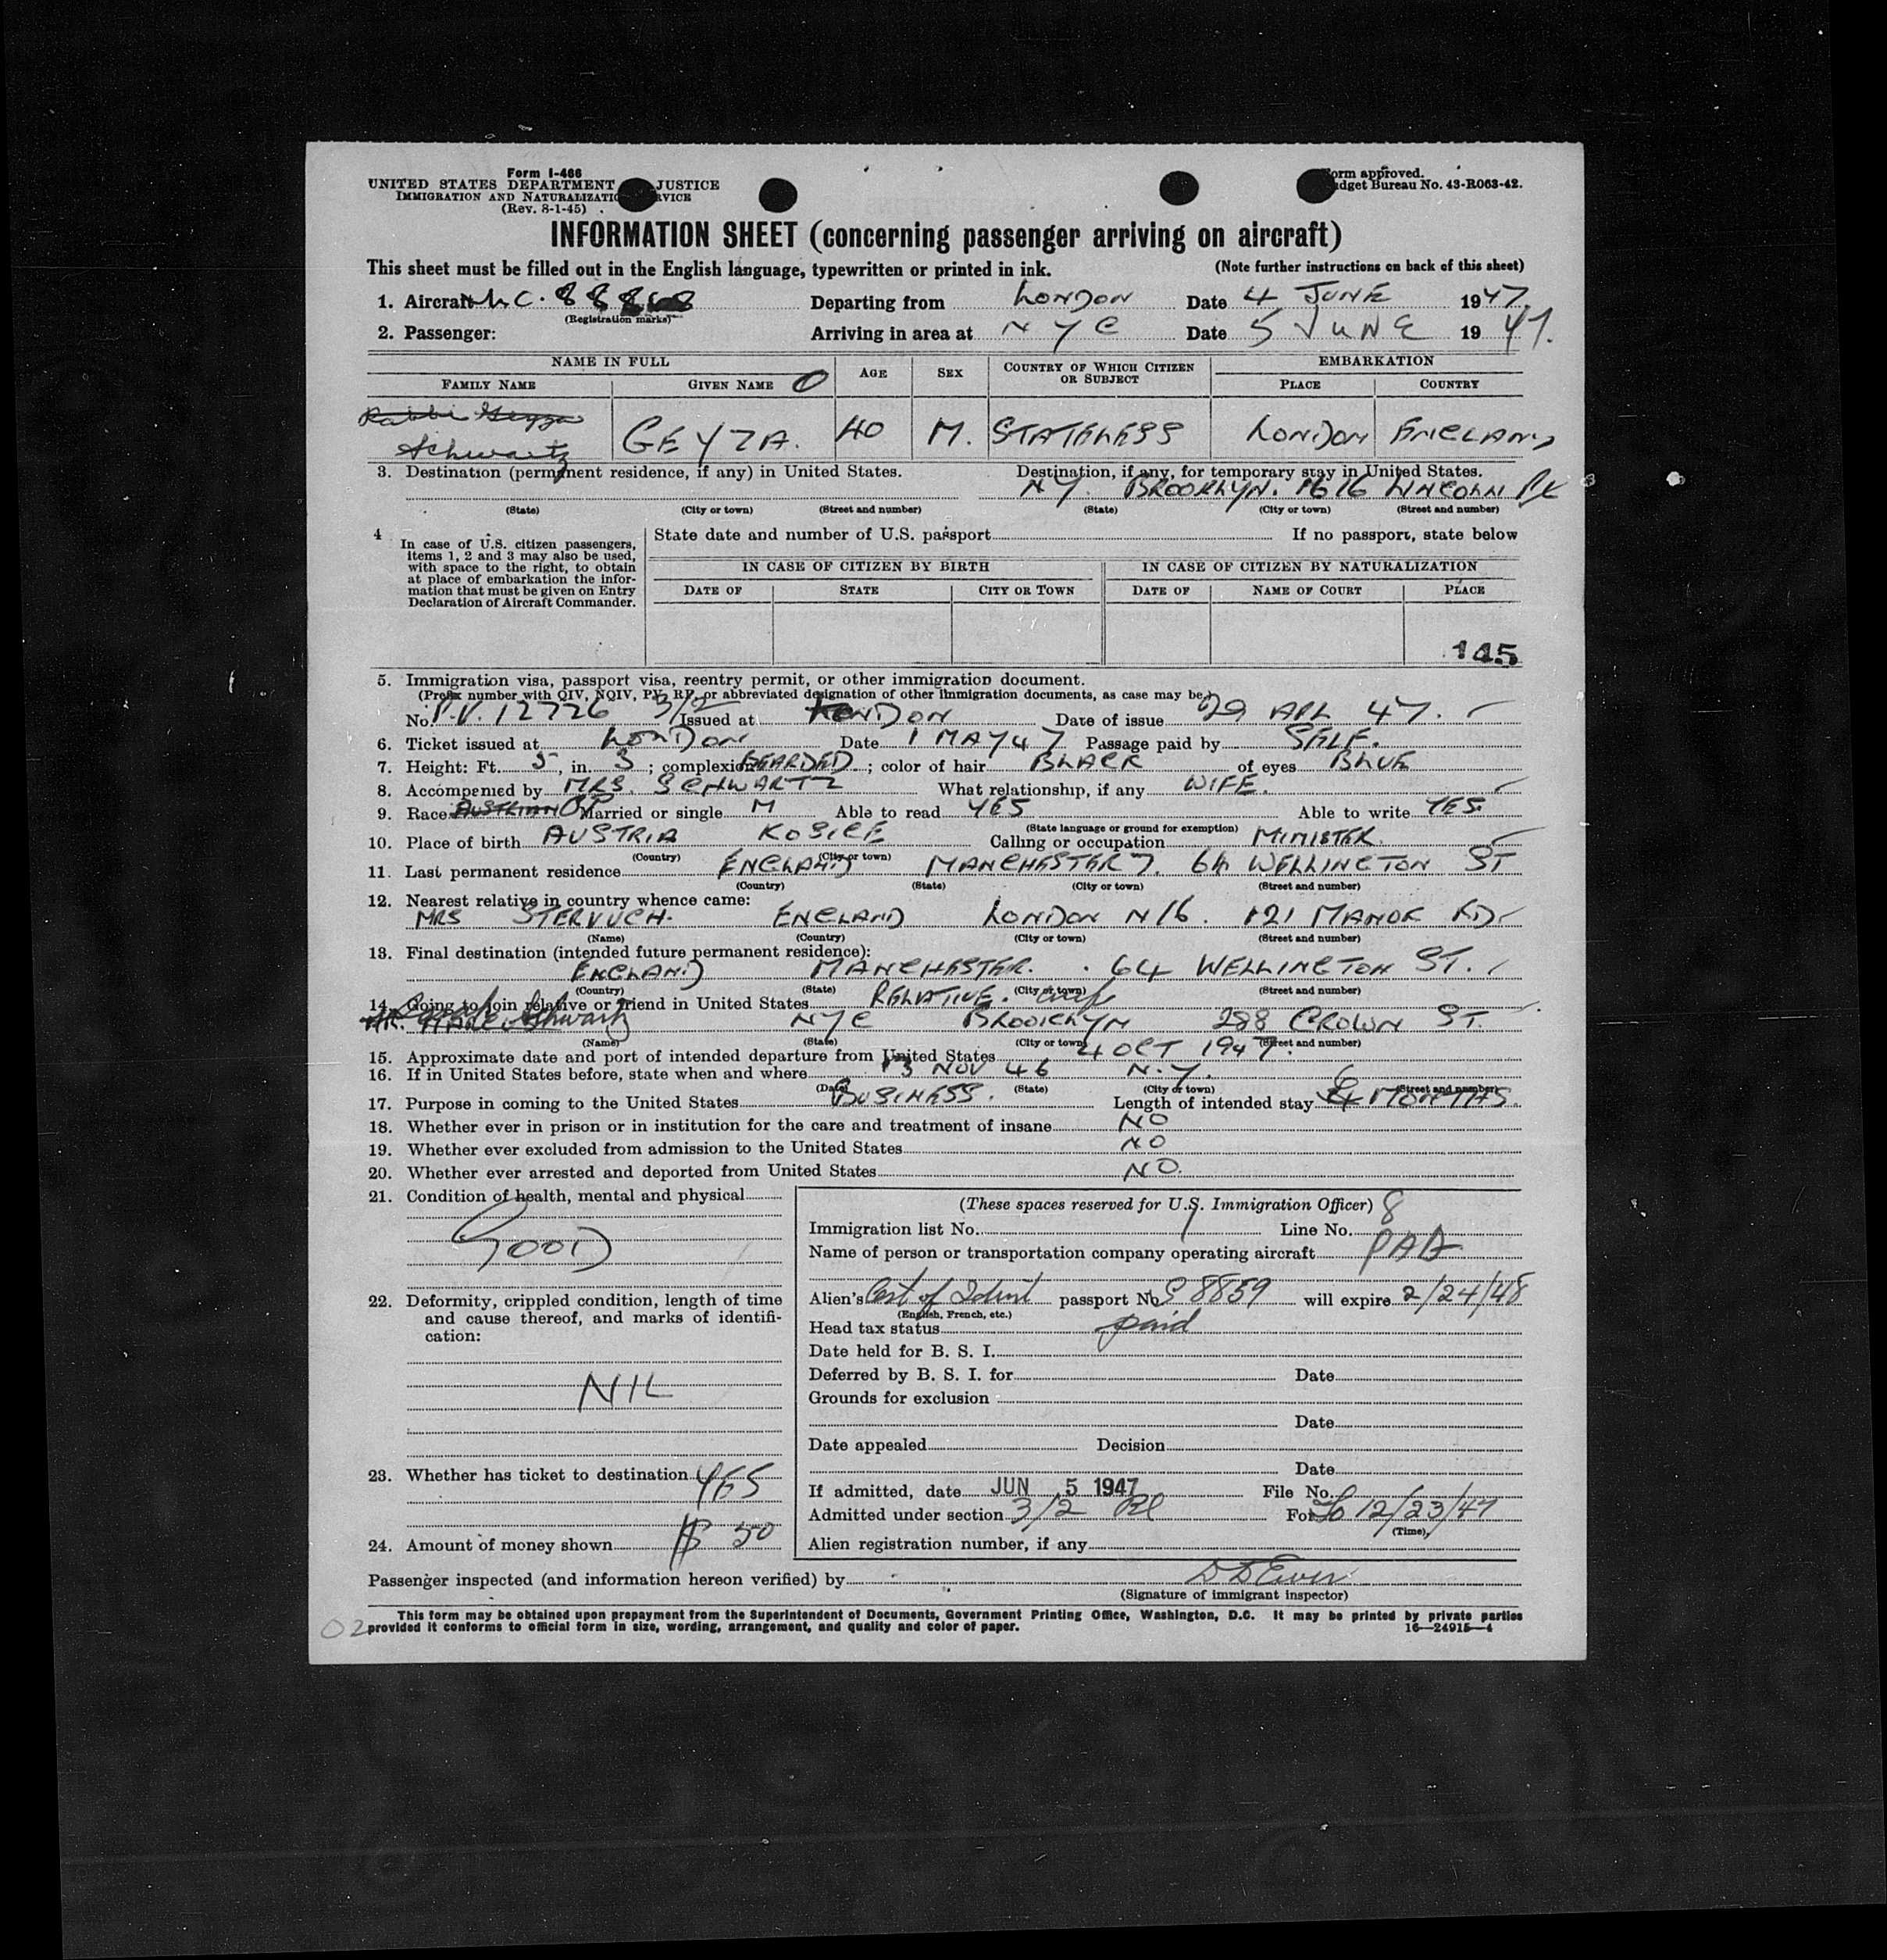 Form I-466
UNITED STATES DEPARTMENT JUSTICE
IMMIGRATION AND NATURALIZATIO RVICE
(Rev. 8-1-45)
orm approved.
dget Bureau No. 43-R063-42.
INFORMATION SHEET (concerning passenger arriving on aircraft)
This sheet must be filled out in the English language, typewritten or printed in ink. (Note further instructions on back of this sheet)
1. Aircraft (Registration marks) Departing from LONDON Date 4 JUNE 1947.
2. Passenger: Arriving in area at NYC Date 5 JUNE 1947.
NAME IN FULL AGE SEX COUNTRY OF WHICH CITIZEN OR SUBJECT EMBARKATION
FAMILY NAME GIVEN NAME PLACE COUNTRY
Rabbi
Schwartz GEYZA. 40 M. STATELESS LONDON ENGLAND
3. Destination (permanent residence, if any) in United States. Destination, if any, for temporary stay in United States.
NY. BROOKLYN. 1616 LINCOLN PL
(State) (City or town) (Street and number) (State) (City or town) (Street and number)
4 In case of U.S. citizen passengers, items 1, 2 and 3 may also be used, with space to the right, to obtain at place of embarkation the information that must be given on Entry Declaration of Aircraft Commander.
State date and number of U.S. passport If no passport, state below
IN CASE OF CITIZEN BY BIRTH IN CASE OF CITIZEN BY NATURALIZATION
DATE OF STATE CITY OR TOWN DATE OF NAME OF COURT PLACE
145
5. Immigration visa, passport visa, reentry permit, or other immigration document.
(Prefix number with QIV, NQIV, PV, RP, or abbreviated designation of other immigration documents, as case may be.)
No. P.V. 12726 3/2 Issued at LONDON Date of issue 29 APL 47.
6. Ticket issued at LONDON Date 1 MAY 47 Passage paid by SELF.
7. Height: Ft. 5, in. 3; complexion BEARDED; color of hair BLACK of eyes BLUE
8. Accompanied by MRS. SCHWARTZ What relationship, if any WIFE.
9. Race AUSTRIAN Married or single M Able to read YES Able to write YES.
(State language or ground for exemption)
10. Place of birth AUSTRIA KOSICE Calling or occupation MINISTER.
(Country) (City or town)
11. Last permanent residence ENGLAND MANCHESTER 7. 64 WELLINGTON ST
(Country) (State) (City or town) (Street and number)
12. Nearest relative in country whence came:
MRS ENGLAND LONDON N16. 121 MANOR RD
(Name) (Country) (City or town) (Street and number)
13. Final destination (intended future permanent residence):
ENGLAND MANCHESTER. 64 WELLINGTON ST.
(Country) (State) (City or town) (Street and number)
14. Going to join relative or friend in United States RELATIVE.
Schwartz NYC BROOKLYN 288 CROWN ST.
(Name) (State) (City or town) (Street and number)
15. Approximate date and port of intended departure from United States 4 OCT 1947.
16. If in United States before, state when and where 13 NOV 46 N.Y.
(Date) (State) (City or town) (Street and number)
17. Purpose in coming to the United States BUSINESS. Length of intended stay 6 MONTHS.
18. Whether ever in prison or in institution for the care and treatment of insane NO
19. Whether ever excluded from admission to the United States NO
20. Whether ever arrested and deported from United States NO.
21. Condition of health, mental and physical
GOOD
22. Deformity, crippled condition, length of time and cause thereof, and marks of identification:
NIL
23. Whether has ticket to destination YES
24. Amount of money shown $ 50
(These spaces reserved for U.S. Immigration Officer)
Immigration list No. 1 Line No. 8
Name of person or transportation company operating aircraft PAA
Alien's Cert of Ident passport No. 8859 will expire 2/24/48
(English, French, etc.)
Head tax status paid
Date held for B. S. I.
Deferred by B. S. I. for Date
Grounds for exclusion
Date
Date appealed Decision
Date
If admitted, date JUN 5 1947 File No.
Admitted under section 3/2 For to 12/23/47
(Time)
Alien registration number, if any
Passenger inspected (and information hereon verified) by
(Signature of immigrant inspector)
This form may be obtained upon prepayment from the Superintendent of Documents, Government Printing Office, Washington, D.C. It may be printed by private parties
02 provided it conforms to official form in size, wording, arrangement, and quality and color of paper. 16—24915-4